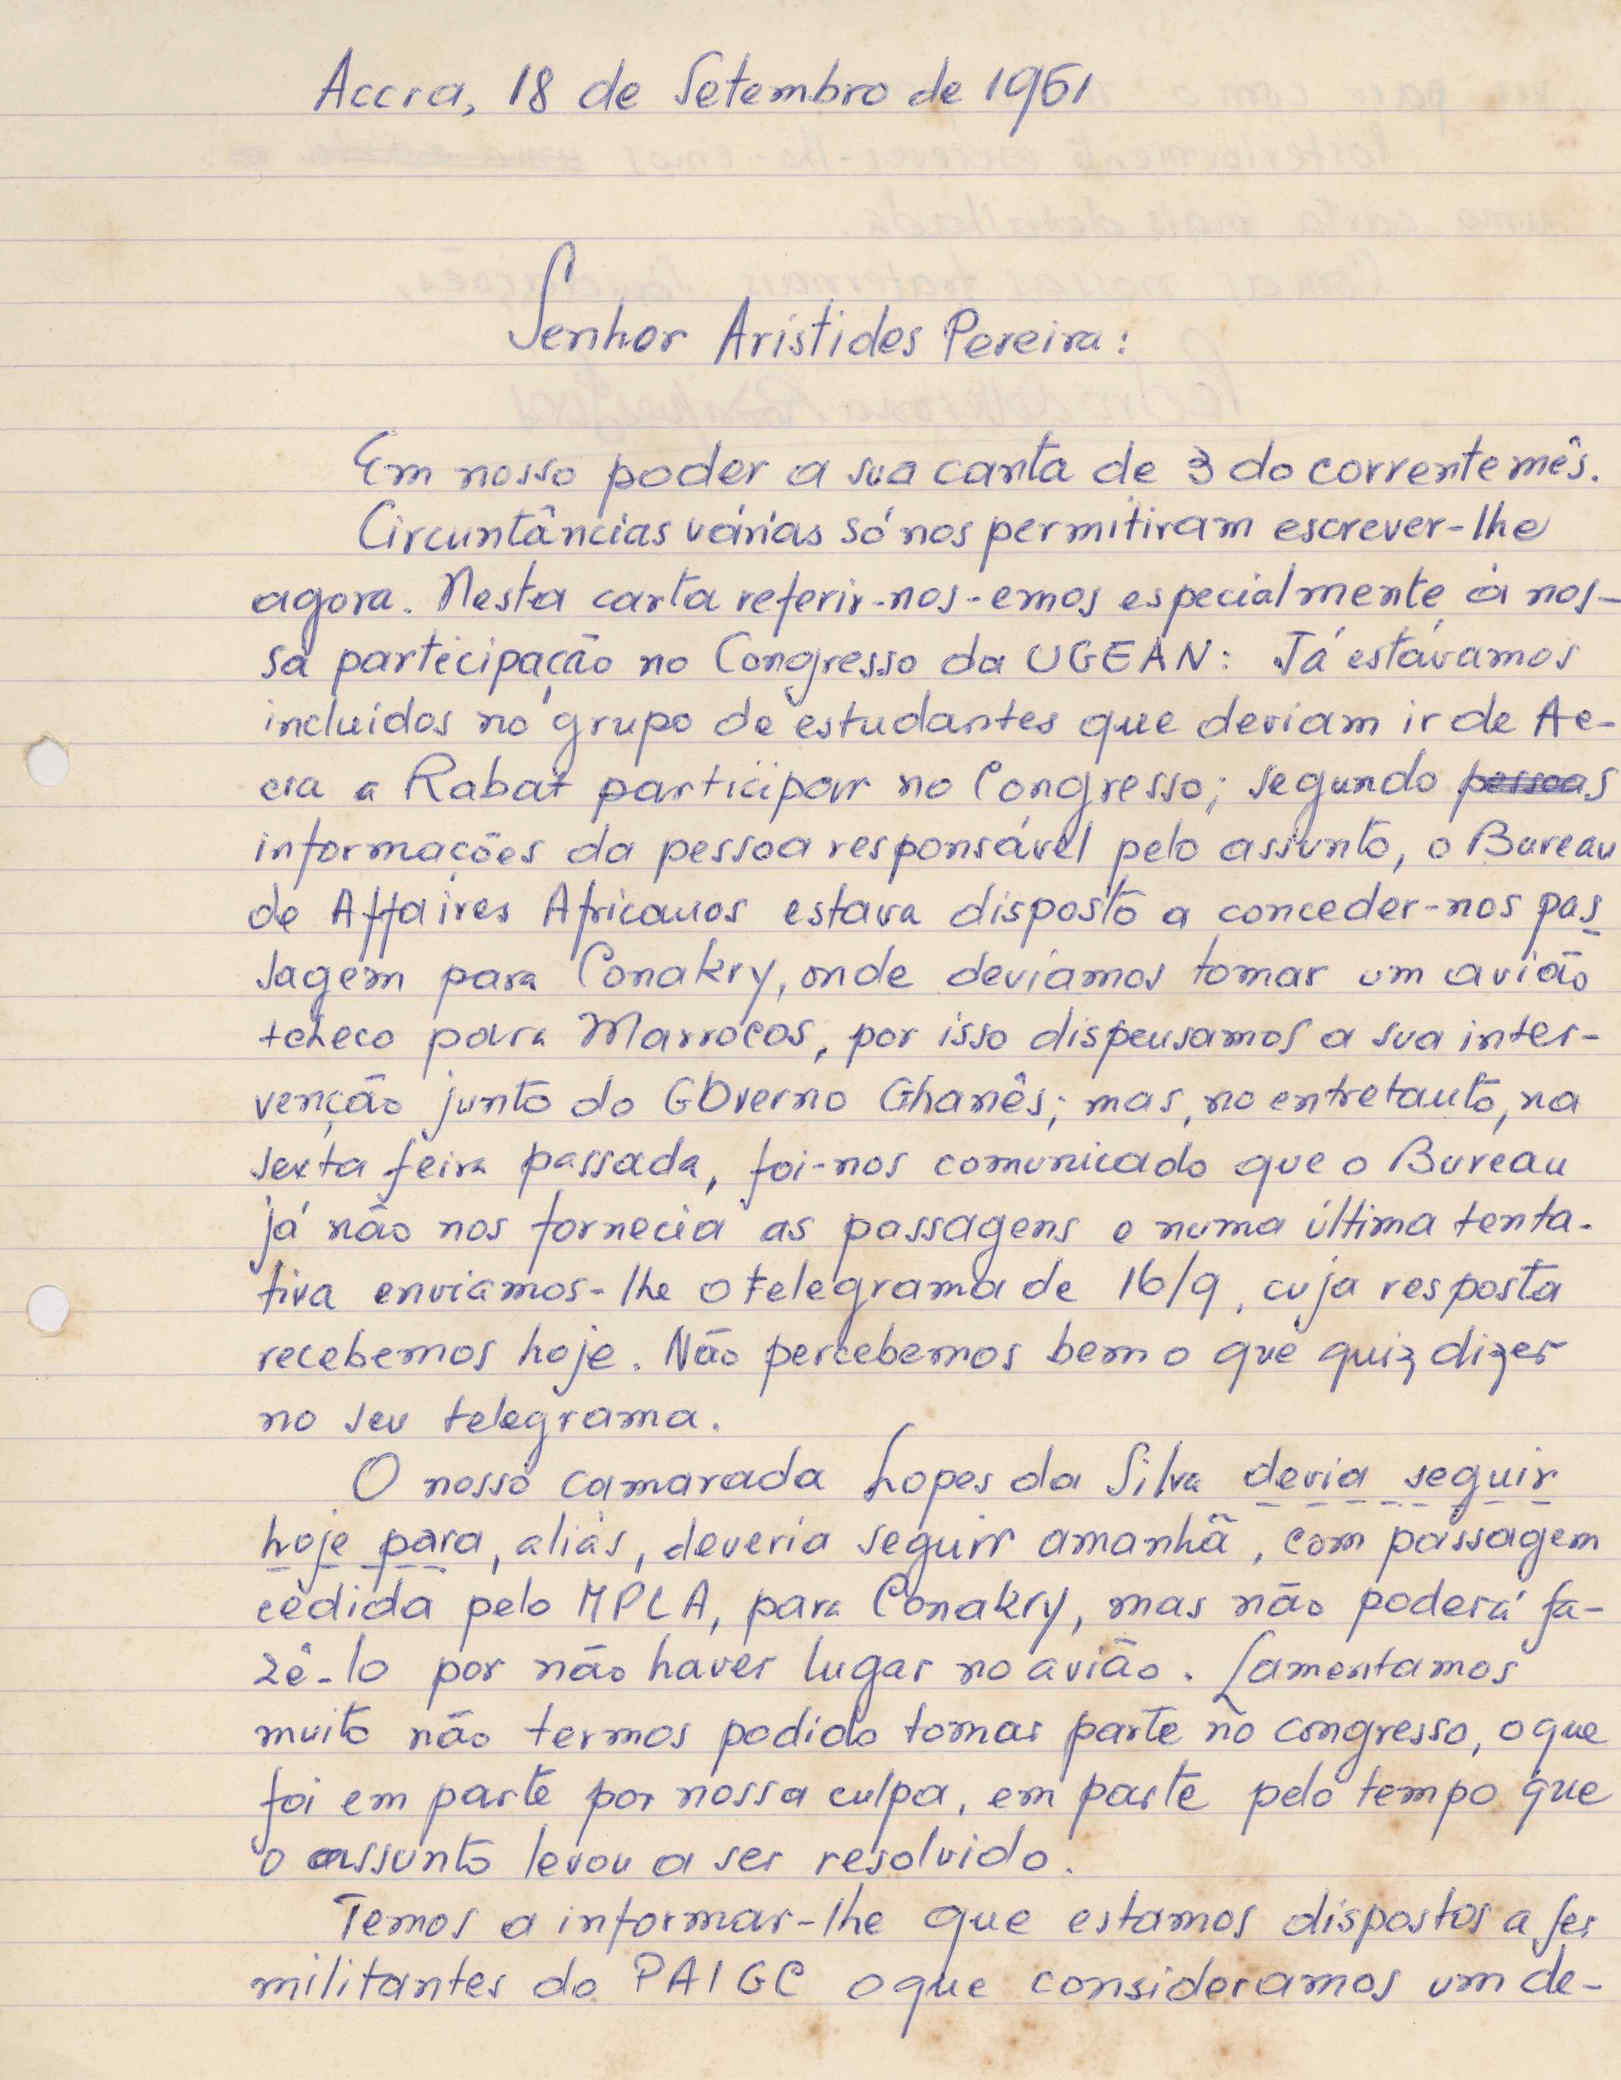 Accra, 18 de Setembro de 1961
Senhor Arístides Pereira:
Em nosso poder a sua carta de 3 do corrente mês.
Circuntâncias várias só nos permitiram escrever-lhe
agora. Nesta carta referir-nos-emos especialmente à nos-
sa participação no Congresso da UGEAN: Já estávamos
incluídos no grupo de estudantes que deviam ir de Ac-
cra a Rabat participar no Congresso; segundo pessoas
informações da pessoa responsável pelo assunto, o Bureau
de Affaires Africanos estava disposto a conceder-nos pas
sagem para Conakry, onde devíamos tomar um avião
tcheco para Marrocos, por isso dispensamos a sua inter-
venção junto do Governo Ghanês; mas, no entretanto, na
sexta feira passada, foi-nos comunicado que o Bureau
já não nos fornecia as passagens e numa última tenta-
tiva enviamos-lhe o telegrama de 16/9, cuja resposta
recebemos hoje. Não percebemos bem o que quiz dizer
no seu telegrama.
O nosso camarada Lopes da Silva devia seguir
hoje para, aliás, deveria seguir amanhã, com passagem
cedida pelo MPLA, para Conakry, mas não poderá fa-
zê-lo por não haver lugar no avião. Lamentamos
muito não termos podido tomar parte no congresso, o que
foi em parte por nossa culpa, em parte pelo tempo que
o assunto levou a ser resolvido.
Temos a informar-lhe que estamos dispostos a ser
militantes do PAIGC o que consideramos um de-